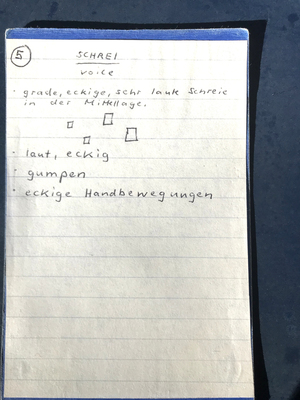 5
SCHREI
voice
· grade, eckige, sehr laute Schreie
in der Mittellage.
· laut, eckig
· gumpen
· eckige Handbewegungen